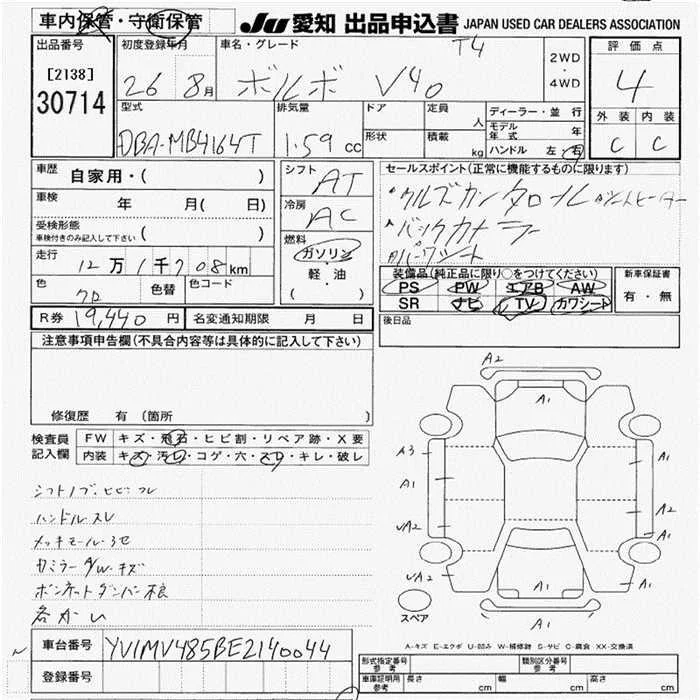 車内保管・守衛保管
JU 愛知 出品申込書 JAPAN USED CAR DEALERS ASSOCIATION
出品番号 初度登録年月 車名・グレード T4 2WD・4WD 評価点
[2138] 30714 26 8月 ボルボ V40 4
型式 排気量 ドア 定員 人 ディーラー・並行 外装 内装
DBA-MB4164T 1.59 cc 形状 積載 kg モデル年式 年 C C
ハンドル 左・右
車歴 自家用・( ) シフト AT セールスポイント(正常に機能するものに限ります)
車検 年 月( 日) 冷房 AC
受検形態 車検付きのみ記入して下さい ( )
バックカメラー
走行 12万1千708km 燃料 ガソリン
軽・油
( )
パワーシート
装備品(純正品に限り○をつけてください) 新車保証書
色 クロ 色替 色コード
PS PW エアB AW 有・無
SR ナビ TV カワシート
R券 19,440円 名変通知期限 月 日 後日品
注意事項申告欄(不具合内容等は具体的に記入して下さい)
修復歴 有 (箇所 )
検査員記入欄 FW キズ・飛石・ヒビ割・リペア跡・X要
内装 キズ・汚レ・コゲ・穴・スレ・キレ・破レ
シフトノブ・ヒビ・スレ
ハンドル・スレ
メッキモール・
ボンネットダンパー不良
A2
A1
A3 A1
A1
UA2 A2
A1
UA2 A1 A1
スペア A1
A-キズ E-エクボ U-凹み W-補修跡 S-サビ C-腐食 XX-交換済
車台番号 YV1MV485BE2140044
登録番号
形式指定番号 参考 類別区分番号 参考
車庫証明用 参考 長さ cm 幅 cm 高さ cm